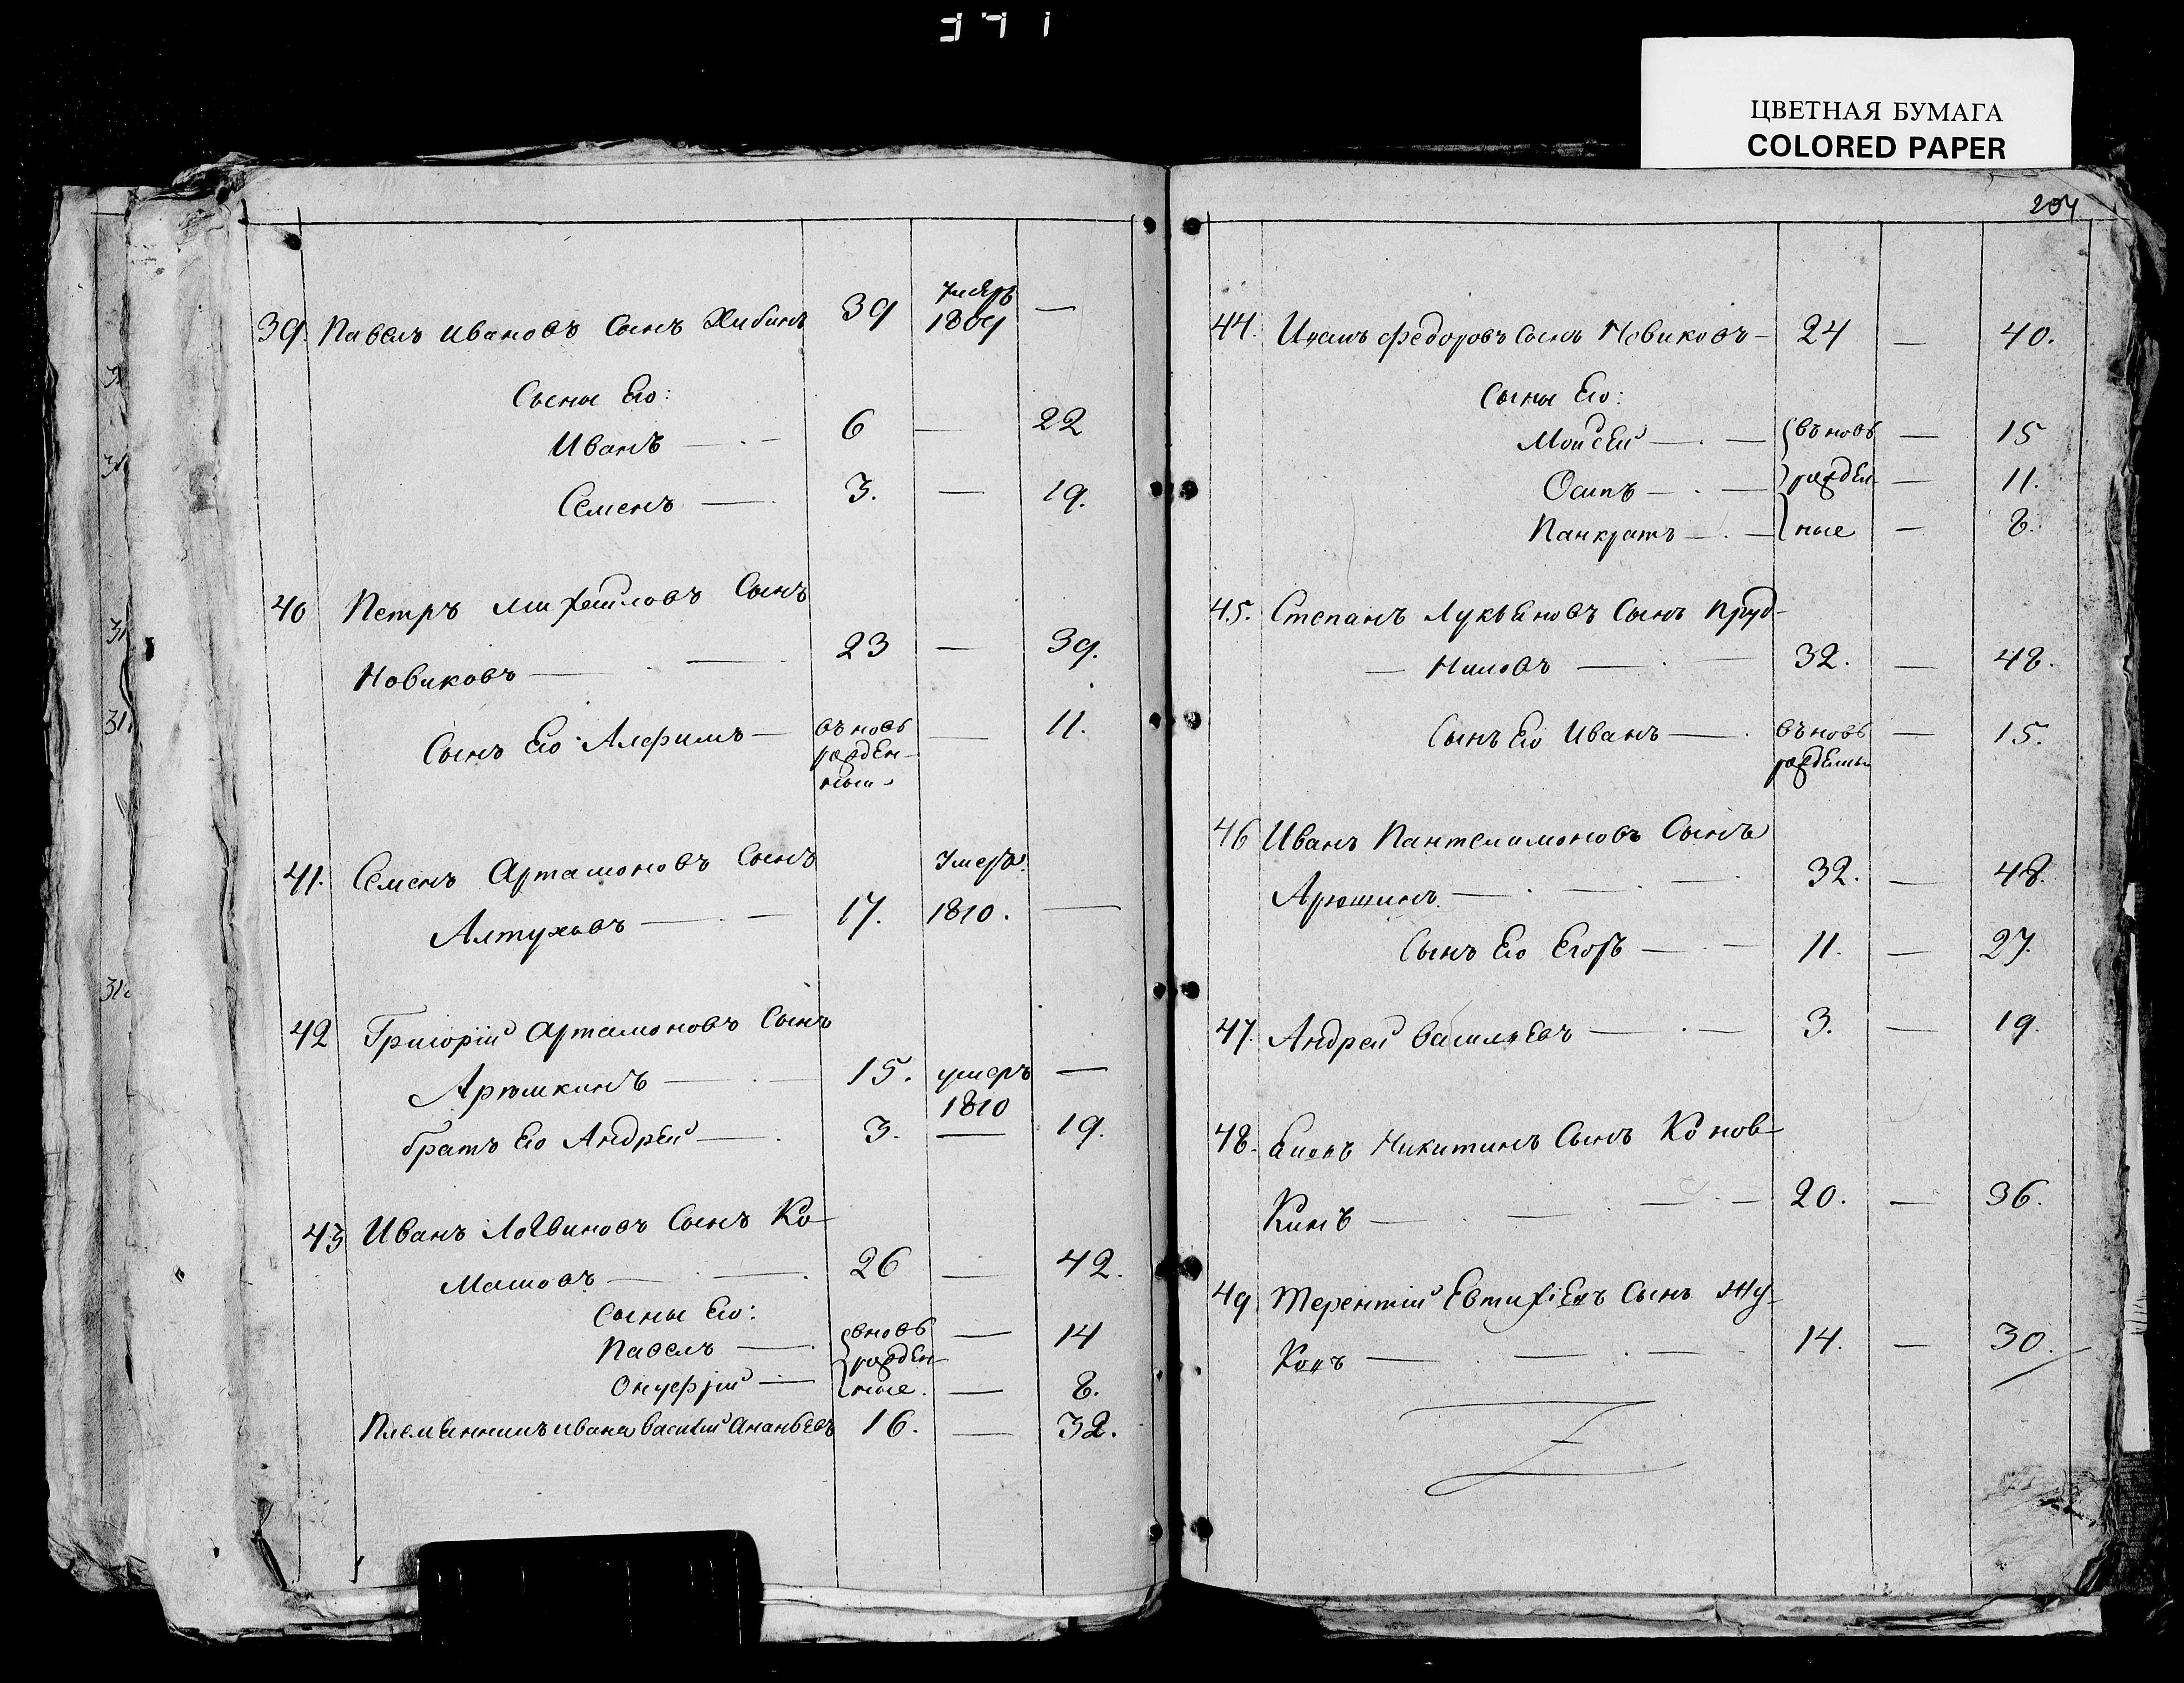 371
ЦВЕТНАЯ БУМАГА
COLORED PAPER
39. Павелъ Ивановъ Сынъ Хибинъ 39 умеръ 1809 —
Сыны Его:
Иванъ — 6 — 22
Семенъ — 3. — 19.
40 Петръ Михайловъ Сынъ
Новиковъ — 23 — 39.
Сынъ Его Алфимъ — въновь — 11.
рожден-
ный
41. Семенъ Артамоновъ Сынъ умеръ
Алтуховъ — 17. 1810. —
42 Григорій Артамоновъ Сынъ
Артюшкинъ — 15. умеръ —
1810
братъ Его Андрей — 3. — 19.
43 Иванъ Логвиновъ Сынъ Ко-
Машовъ — 26 — 42.
Сыны Его:
Павелъ — вновь — 14
рожден-
Онуфрій — ные. — 8.
Племянникъ ивана Василій Ананьевъ 16. — 32.
204
44. Федоровъ Сынъ Новиковъ — 24 — 40.
Сыны Его:
Моисей — въновь — 15
Осипъ — рожден- — 11.
Панкратъ — ные — 8.
45. Степанъ Лукьяновъ Сынъ Груд-
— Ниновъ — 32. — 48.
Сынъ Его Иванъ — въновь — 15.
рожденный
46 Иванъ Пантелимоновъ Сынъ
Арюшинъ — 32. — 48.
Сынъ Его Егоръ — 11. — 27.
47. Андрей Васильевъ — 3. — 19.
48. Никитинъ Сынъ Конов-
Кинъ — 20. — 36.
49 Терентій Евтифіевъ Сынъ Жу-
Ковъ — 14. — 30.